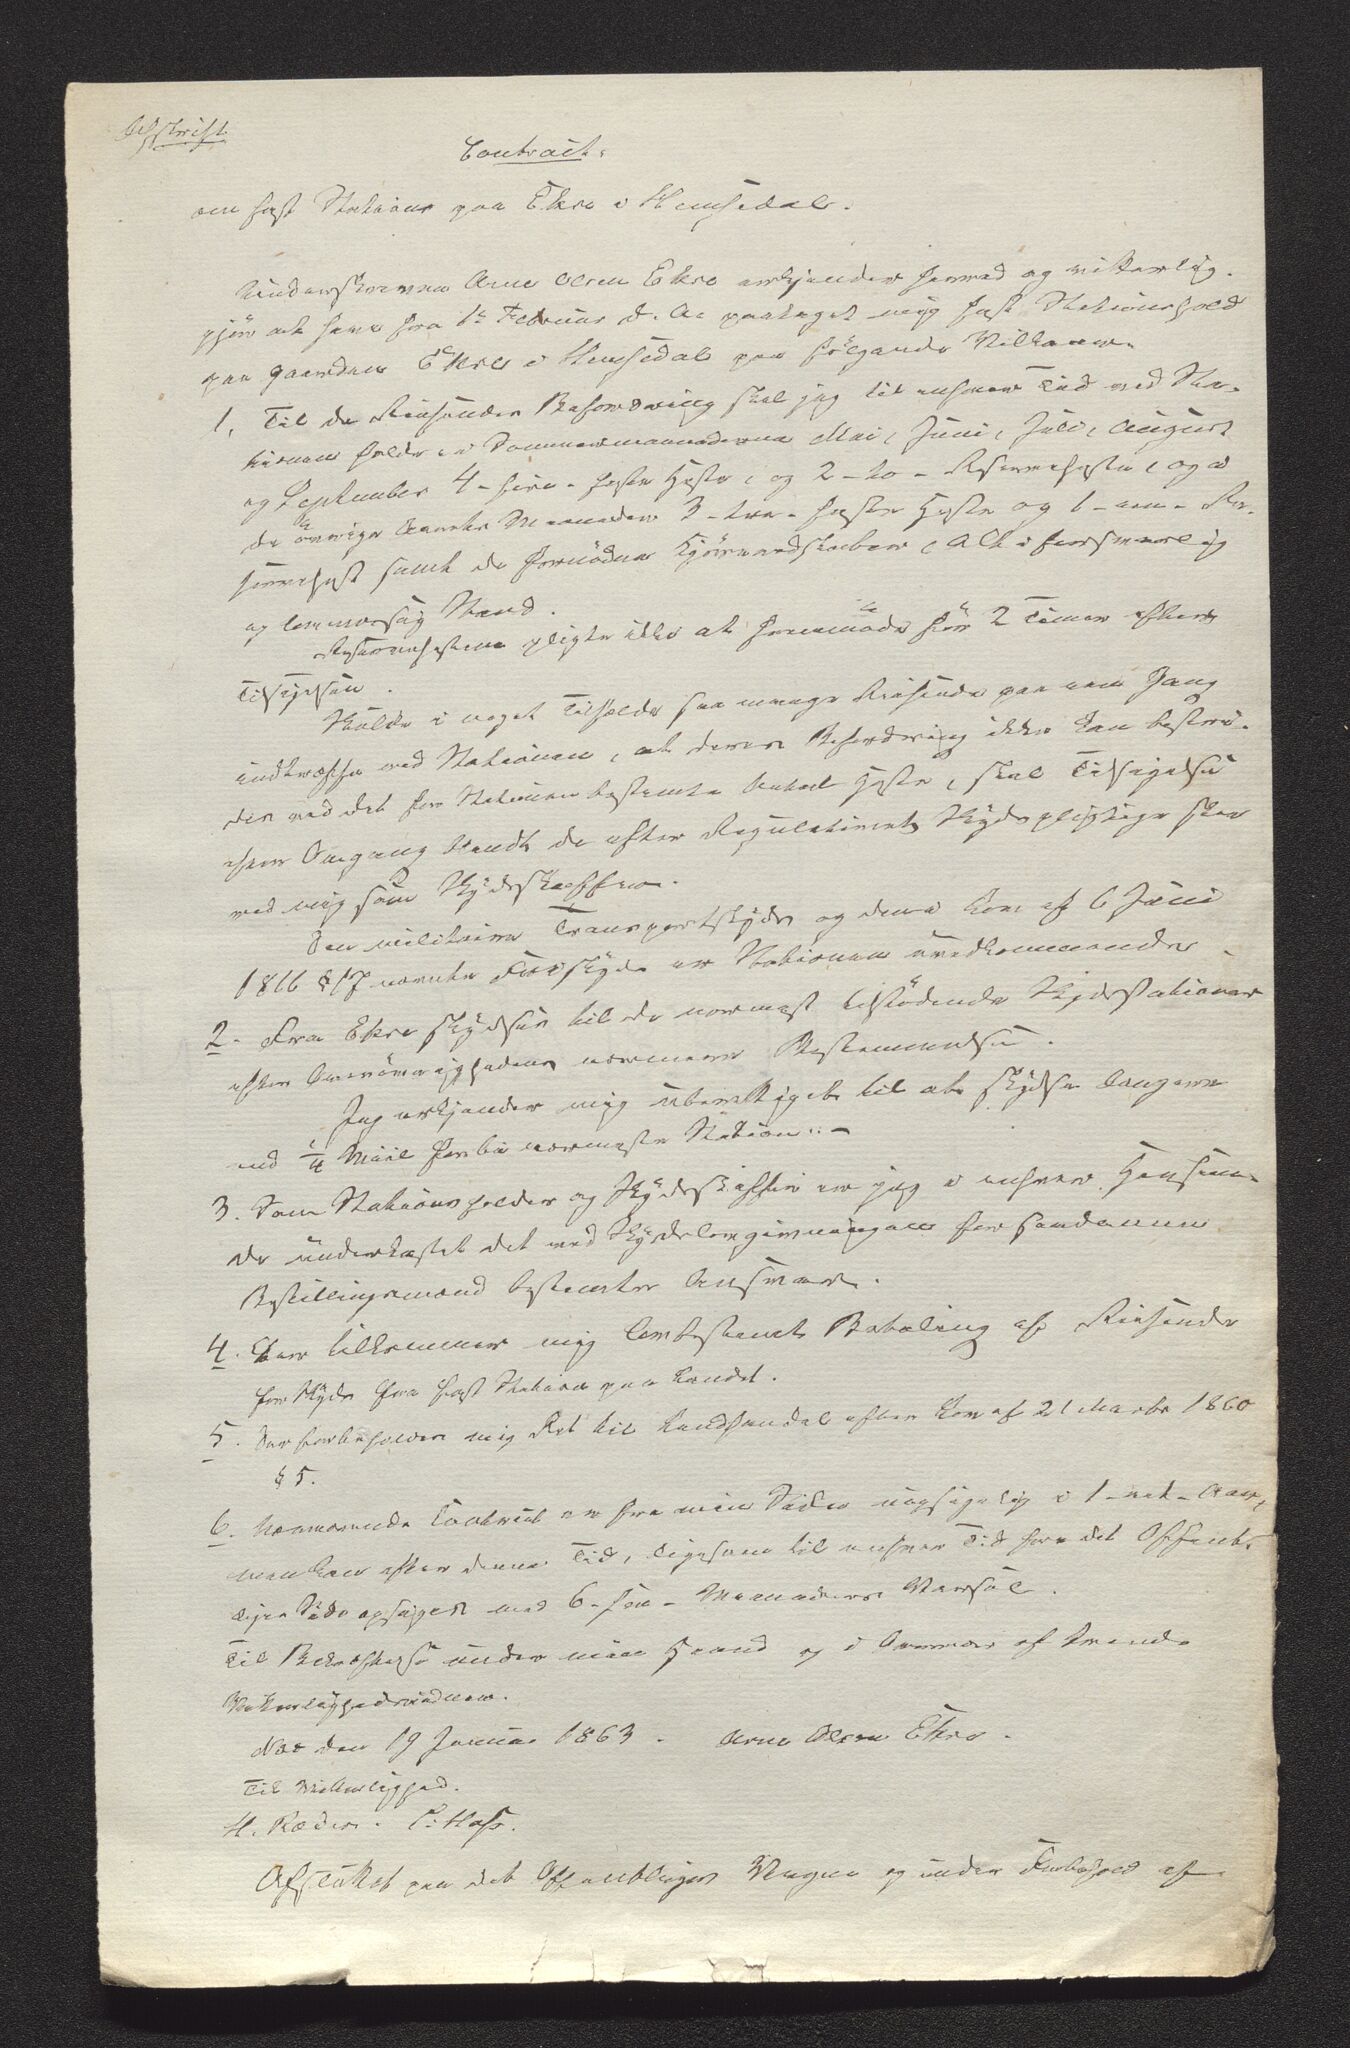 Afskrift
Contract
om fast Station paa Ekre i Hemsedal.
Underskrevne Arne Olsen Ekre erkjender herved og vitterlig-
gjør at have fra 1ste Februar d. A. paataget mig fast Stationshold
paa Gaarden Ekre i Hemsedal paa følgende Vilkaar.
1. Til de Reisendes Befordring skal jeg til enhver Tid ved Sta-
tionen holde i Sommermaanederne Mai, Juni, Juli, August
og September 4 - fire - faste Heste, og 2 - to - Reserveheste, og i
de øvrige Aarets Maaneder 3 - tre - faste Heste og 1 - een - Re-
servehest samt de fornødne Kjøreredskaber, Alt i forsvarlig
og lovmæssig Stand.
Reservehestene pligte ikke at fremmøde før 2 Timer efter
Tilsigelsen.
Skulde i noget Tilfælde saa mange Reisende paa een Gang
indtræffe ved Stationen, at deres Befordring ikke kan bestri-
des ved det for Stationen bestemte Antal Heste, skal Tilsigelse
efter Omgang blandt de efter Regulativet Skydspligtige skee
ved mig som Skydsskaffer.
Den militaire Transportskyds og den i Lov af 6 Juni
1816 § 17 nævnte Friskyds er Stationen uvedkommende.
2. Fra Ekre skydses til de nærmest tilstødende Skydsstationer
efter Overøvrighedens nærmere Bestemmelse.
Jeg erkjender mig uberettiget til at skydse længere
end 1/4 Miil forbi nærmeste Station. -
3. Som Stationsholder og Skydsskaffer er jeg i enhver Henseen-
de underkastet det ved Skydslovgivningen for saadanne
Bestillingsmænd bestemte Ansvar.
4. Der tilkommer mig lovbestemt Betaling af Reisende
for Skyds fra fast Station paa Landet.
5. Der forbeholdes mig Ret til Landhandel efter Lov af 21 Marts 1860
§ 5.
6. Nærværende Contract er fra min Side uopsigelig i 1 - eet - Aar,
men kan efter denne Tid, ligesom til enhver Tid fra det Offent-
liges Side opsiges med 6 - sex - Maaneders Varsel.
Til Bekræftelse under min Haand og i Overvær af tvende
Vitterlighedsvidner.
Næs den 19 Januar 1863. Arne Olsen Ekre.
Til Vitterlighed.
H. Ræder. C. Hass.
Afsluttet paa det Offentliges Vegne og under Forbehold af